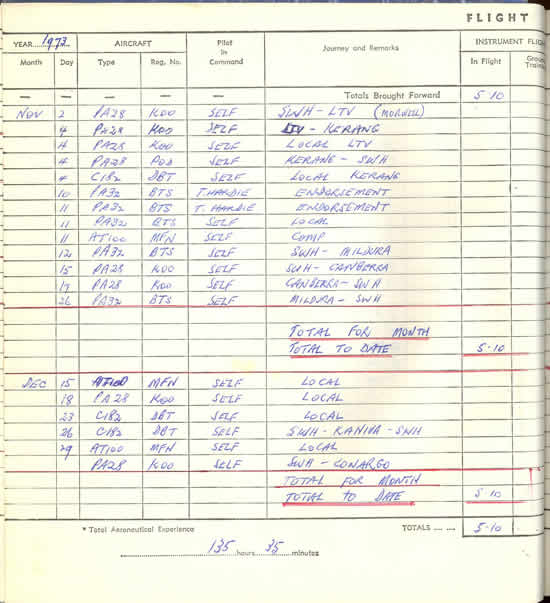 FLIGHT
YEAR 1973 AIRCRAFT Pilot in Command Journey and Remarks INSTRUMENT FLIG
Month Day Type Reg. No. In Flight Groun Traini
— — — — — Totals Brought Forward 5 10
NOV 2 PA28 KOO SELF SWH - LTV (MORWELL)
4 PA28 KOO SELF LTV - KERANG
4 PA28 KOO SELF LOCAL LTV
4 PA28 SELF KERANG - SWH
4 C182 DBT SELF LOCAL KERANG
10 PA32 BTS T. HARDIE ENDORSEMENT
11 PA32 BTS T. HARDIE ENDORSEMENT
11 PA32 BTS SELF LOCAL
11 AT100 MFN SELF COMP
12 PA32 BTS SELF SWH - MILDURA
15 PA28 KOO SELF SWH - CANBERRA
17 PA28 KOO SELF CANBERRA - SWH
26 PA32 BTS SELF MILDURA - SWH
TOTAL FOR MONTH
TOTAL TO DATE 5-10
DEC 15 AT100 MFN SELF LOCAL
18 PA28 KOO SELF LOCAL
23 C182 DBT SELF LOCAL
26 C182 DBT SELF SWH - KANIVA - SWH
29 AT100 MFN SELF LOCAL
PA28 KOO SELF SWH - CONARGO
TOTAL FOR MONTH
TOTAL TO DATE 5 10
* Total Aeronautical Experience TOTALS ........ 5-10
135 hours 35 minutes